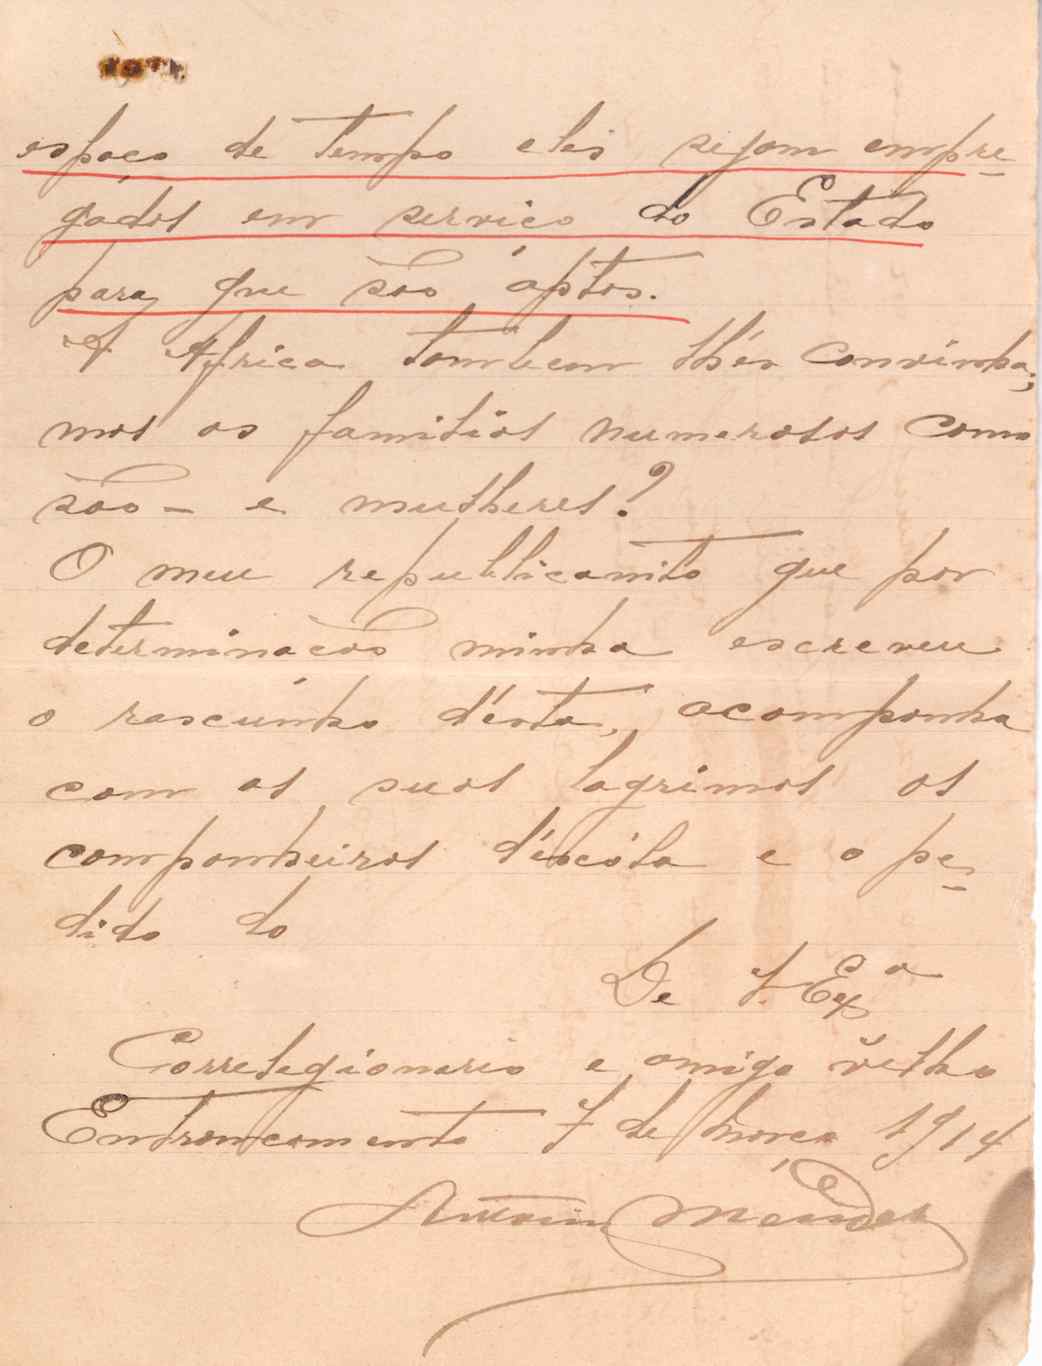 espaço de tempo eles sejam empre-
gados em serviço do Estado
para que são áptos.
A Africa tambem lhés convinha;
mas as familias numerosas como
são - e mulheres?
O meu republicanito que por
determinacão minha escreveu
o rascunho d'ésta, acompanha
com as suas lagrimas os
companheiros d'éscóla e o pe-
dido do
De V. Exª
Correlegionario e amigo vélho
Entroncamento 7 de Março 1914
Antonio Méndes